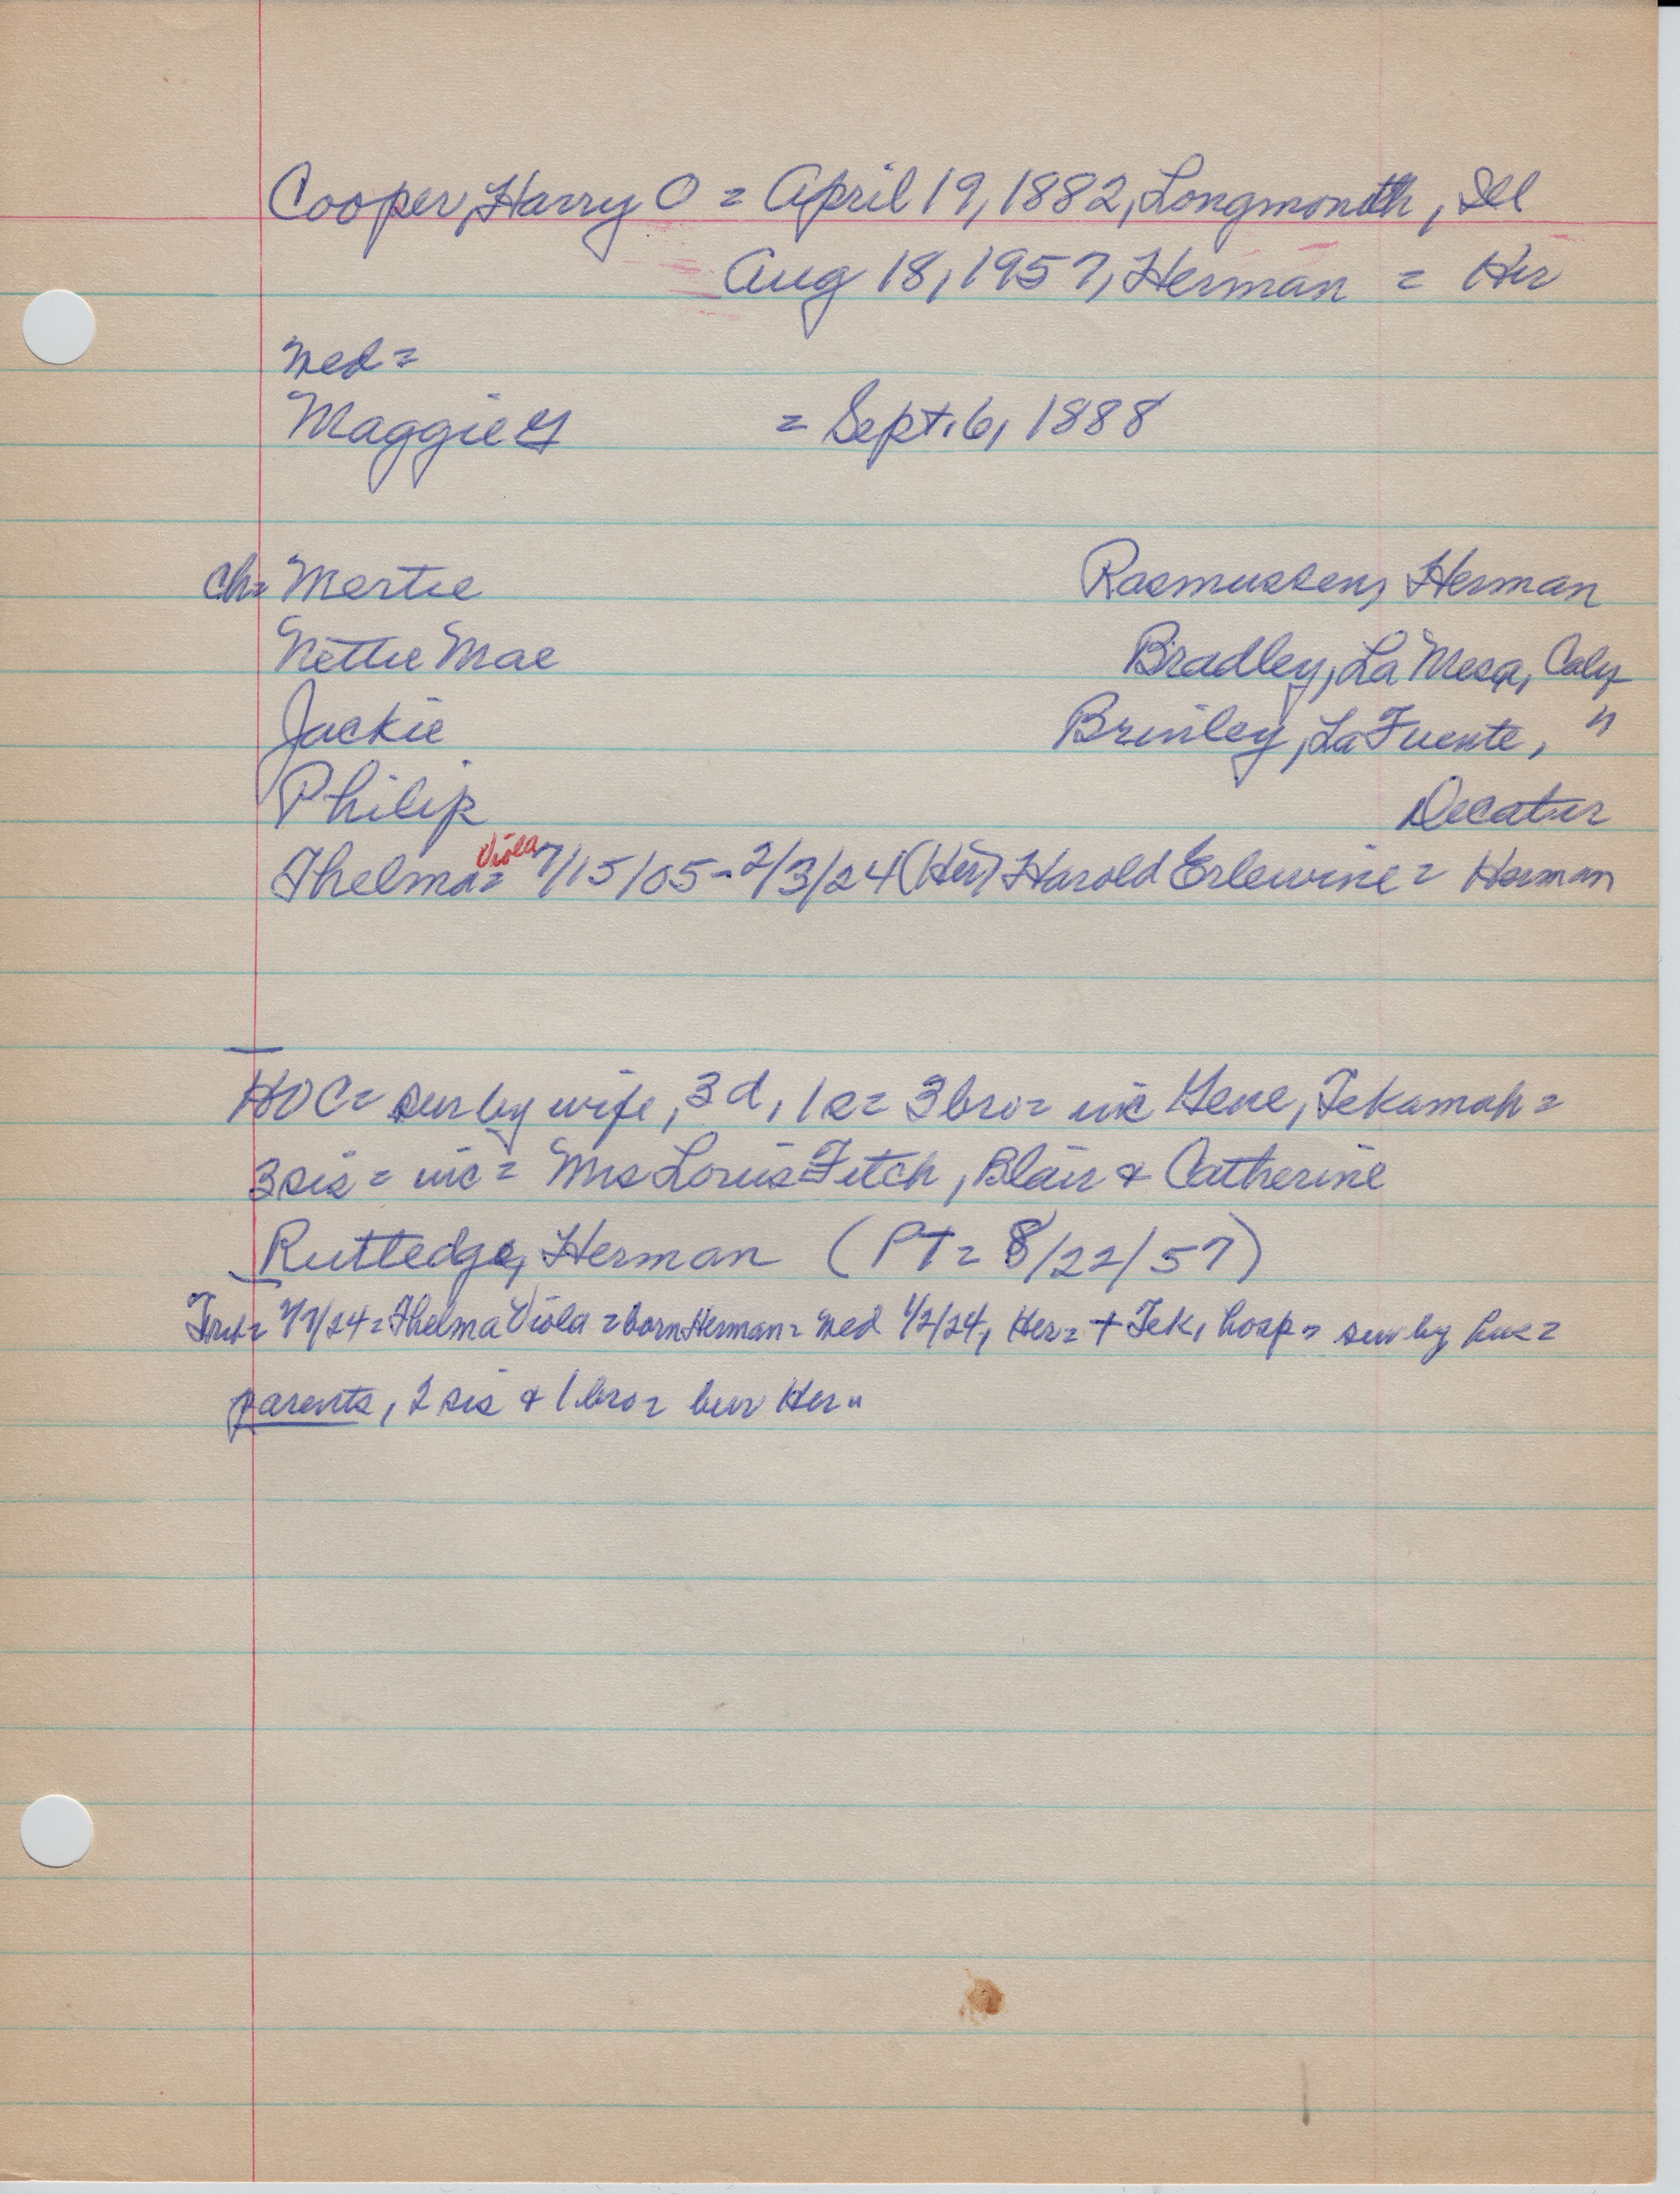 Cooper, Harry O = April 19, 1882, Longmonth, Ill
Aug 18, 1957, Herman = Her
Med =
Maggie G = Sept. 6, 1888
Ch= Mertie Rasmussen, Herman
Nettie Mae Bradley, La Mesa, Calif
Jackie Brinley, La Fuente, "
Philip Decatur
Viola
Thelma= 7/15/05-2/3/24 (Her) Harold Erlewine = Herman
HOC= sur by wife, 3 d, 1 s= 3 bro= inc Gene, Tekamah =
3 sis = inc = Mrs Louis Fitch, Blair & Catherine
Ruttedge, Herman (PT= 8/22/57)
/24 = Thelma Viola = born Herman= Med 1/2/24, Her= + Tek, hosp = sur by hus =
parents, 2 sis & 1 bro = bur Her "